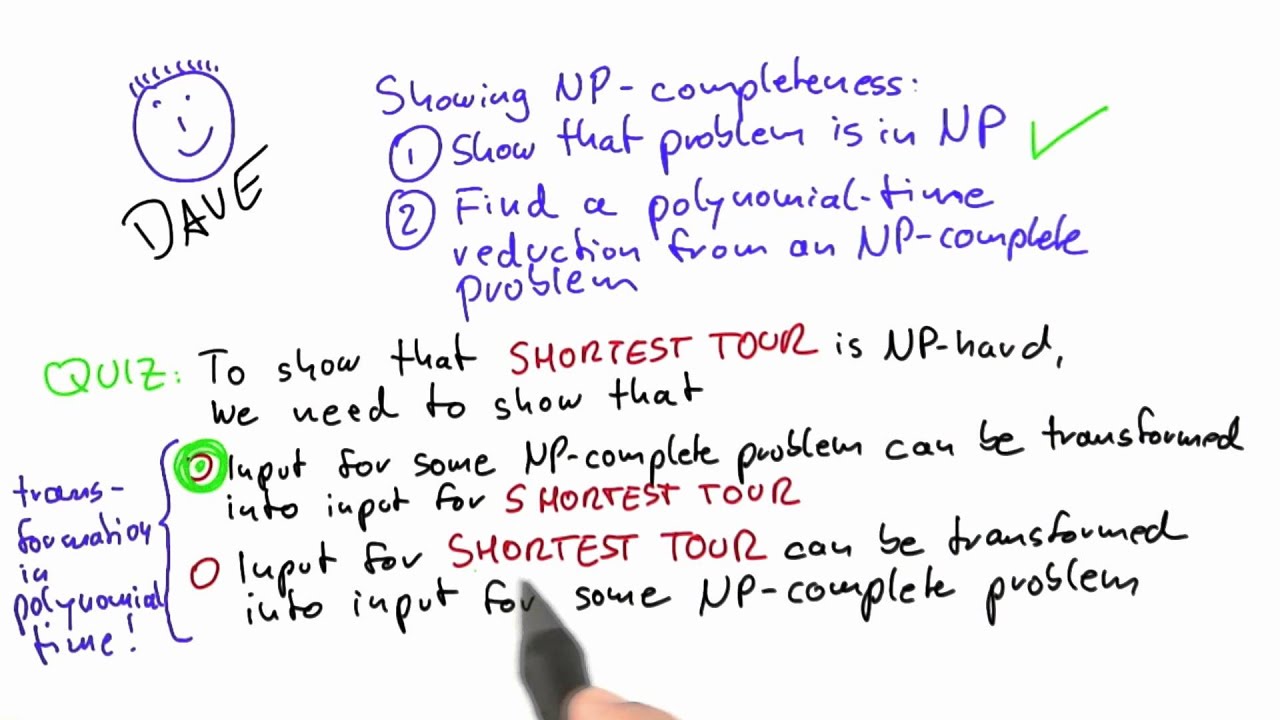 DAVE
Showing NP-completeness:
1 Show that problem is in NP ✓
2 Find a polynomial-time
reduction from an NP-complete
problem
QUIZ: To show that SHORTEST TOUR is NP-hard,
we need to show that
Input for some NP-complete problem can be transformed
into input for SHORTEST TOUR
Input for SHORTEST TOUR can be transformed
into input for some NP-complete problem
trans-
formation
in
polynomial
time!